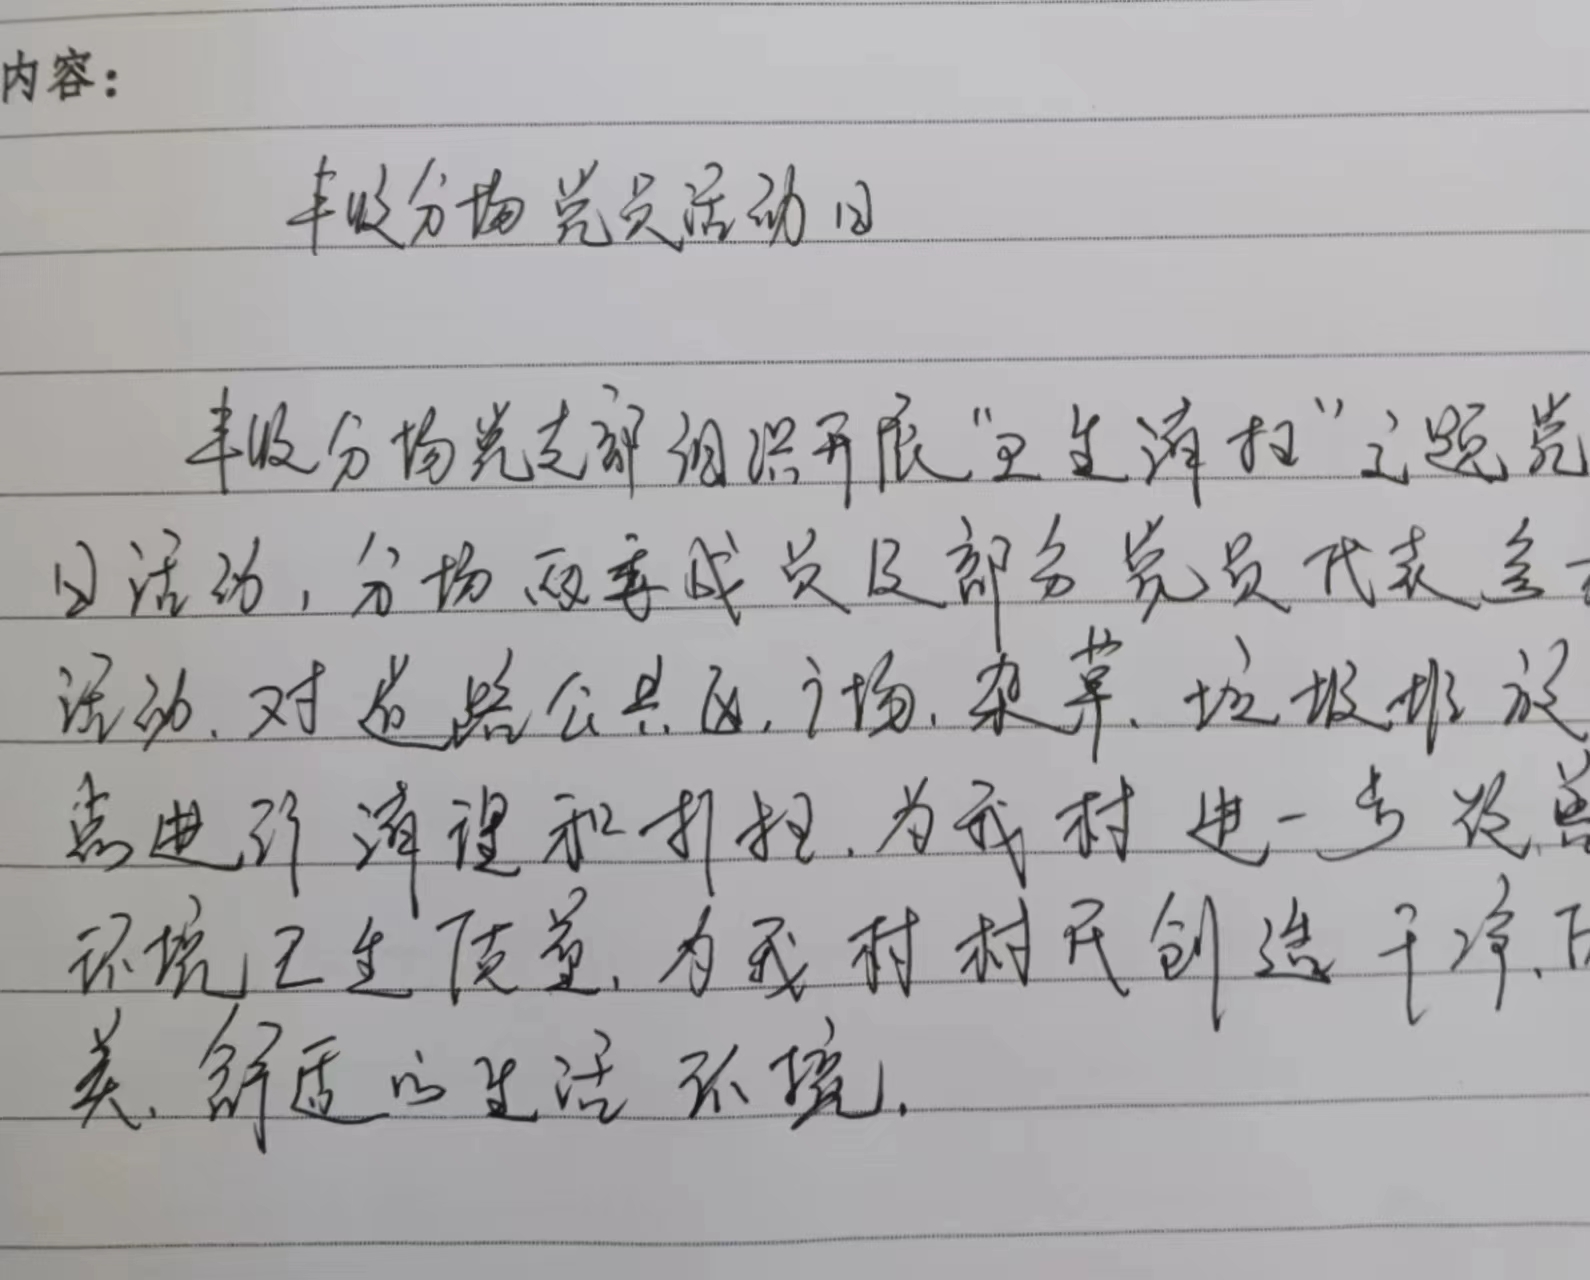 内容：
丰收分场党员活动日
丰收分场党支部组织开展“卫生清扫”主题党
日活动，分场两委成员及部分党员代表参
活动，对道路公共区，广场、杂草、垃圾堆放
点进行清理和打扫，为我村进一步改善
环境卫生质量，为我村村民创造干净、
美、舒适的生活环境.